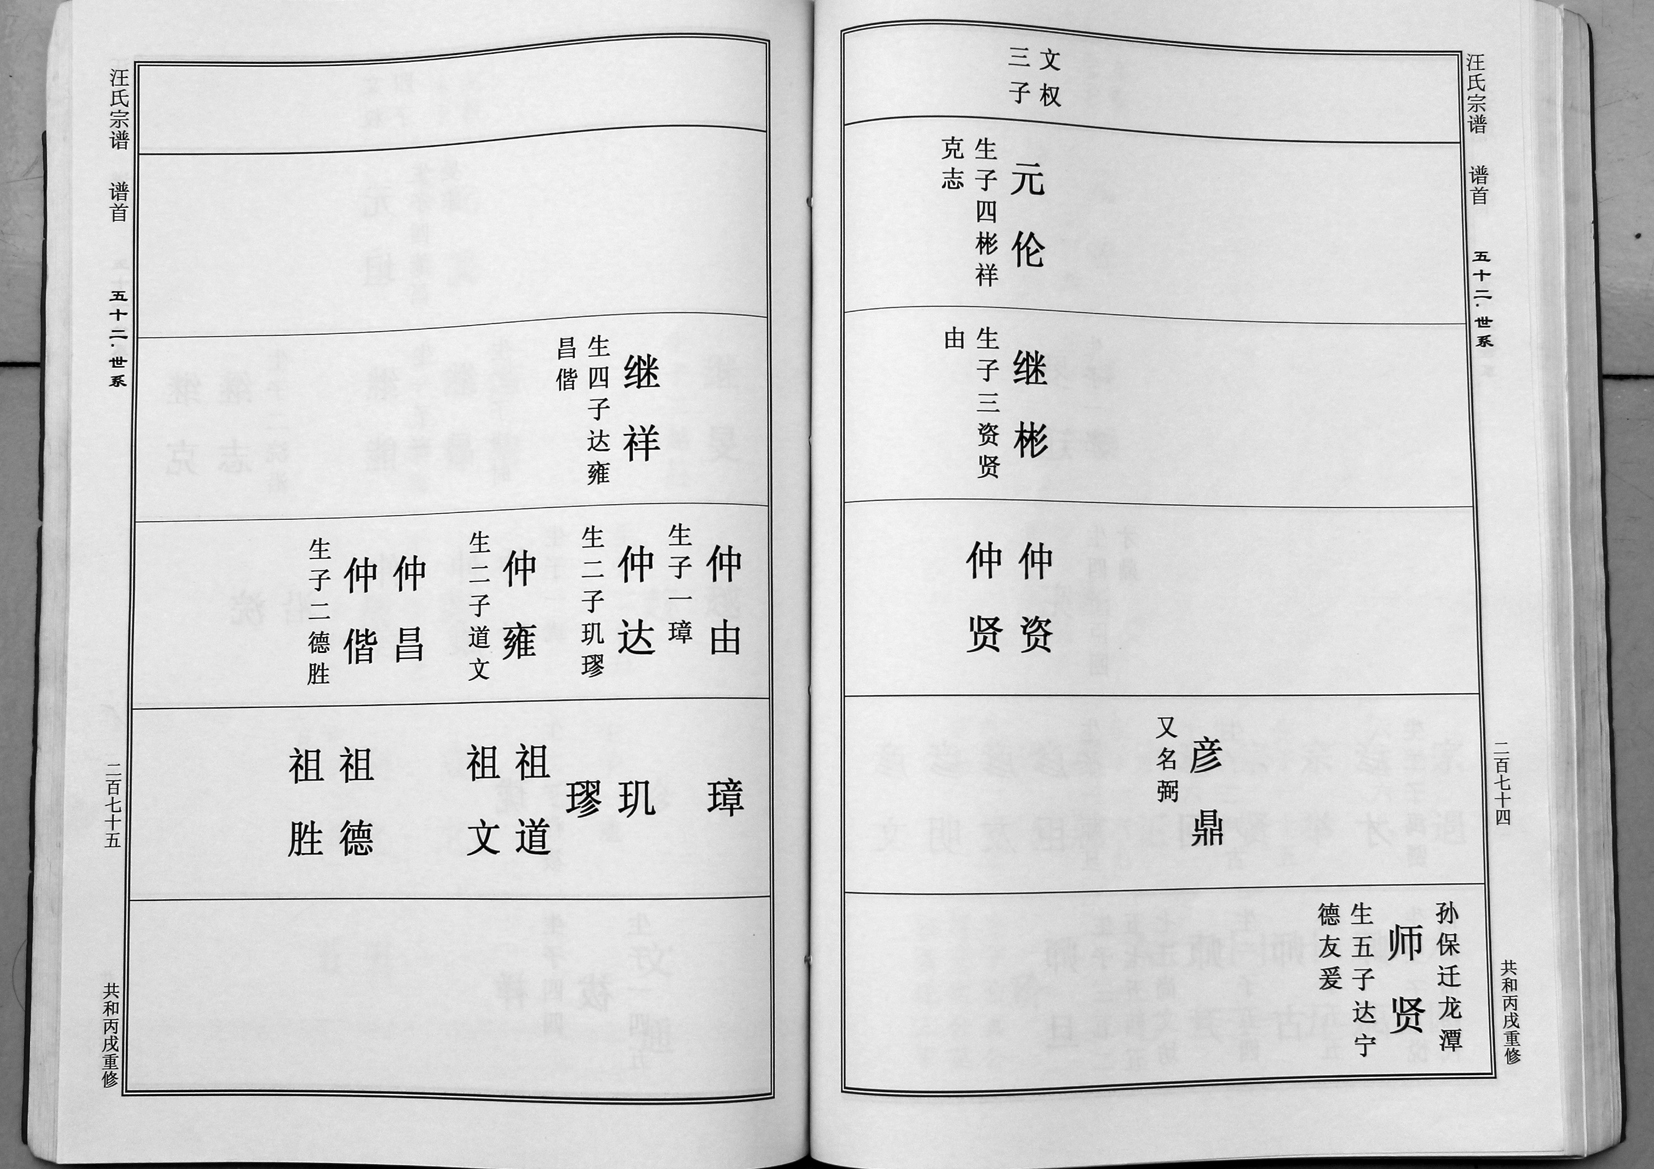 汪氏宗谱 谱首 五十二·世系 二百七十四 共和丙戌重修
文权
三子
元伦
生子四彬祥
克志
继彬
生子三资贤
由
仲资
仲贤
彦鼎
又名弼
孙保迁龙潭
师贤
生五子达宁
德友爰
继祥
生四子达雍
昌偕
仲由
生子一璋
仲达
生二子玑璆
仲雍
生二子道文
仲昌
仲偕
生子二德胜
璋
玑
璆
祖道
祖文
祖德
祖胜
汪氏宗谱 谱首 五十二·世系 二百七十五 共和丙戌重修